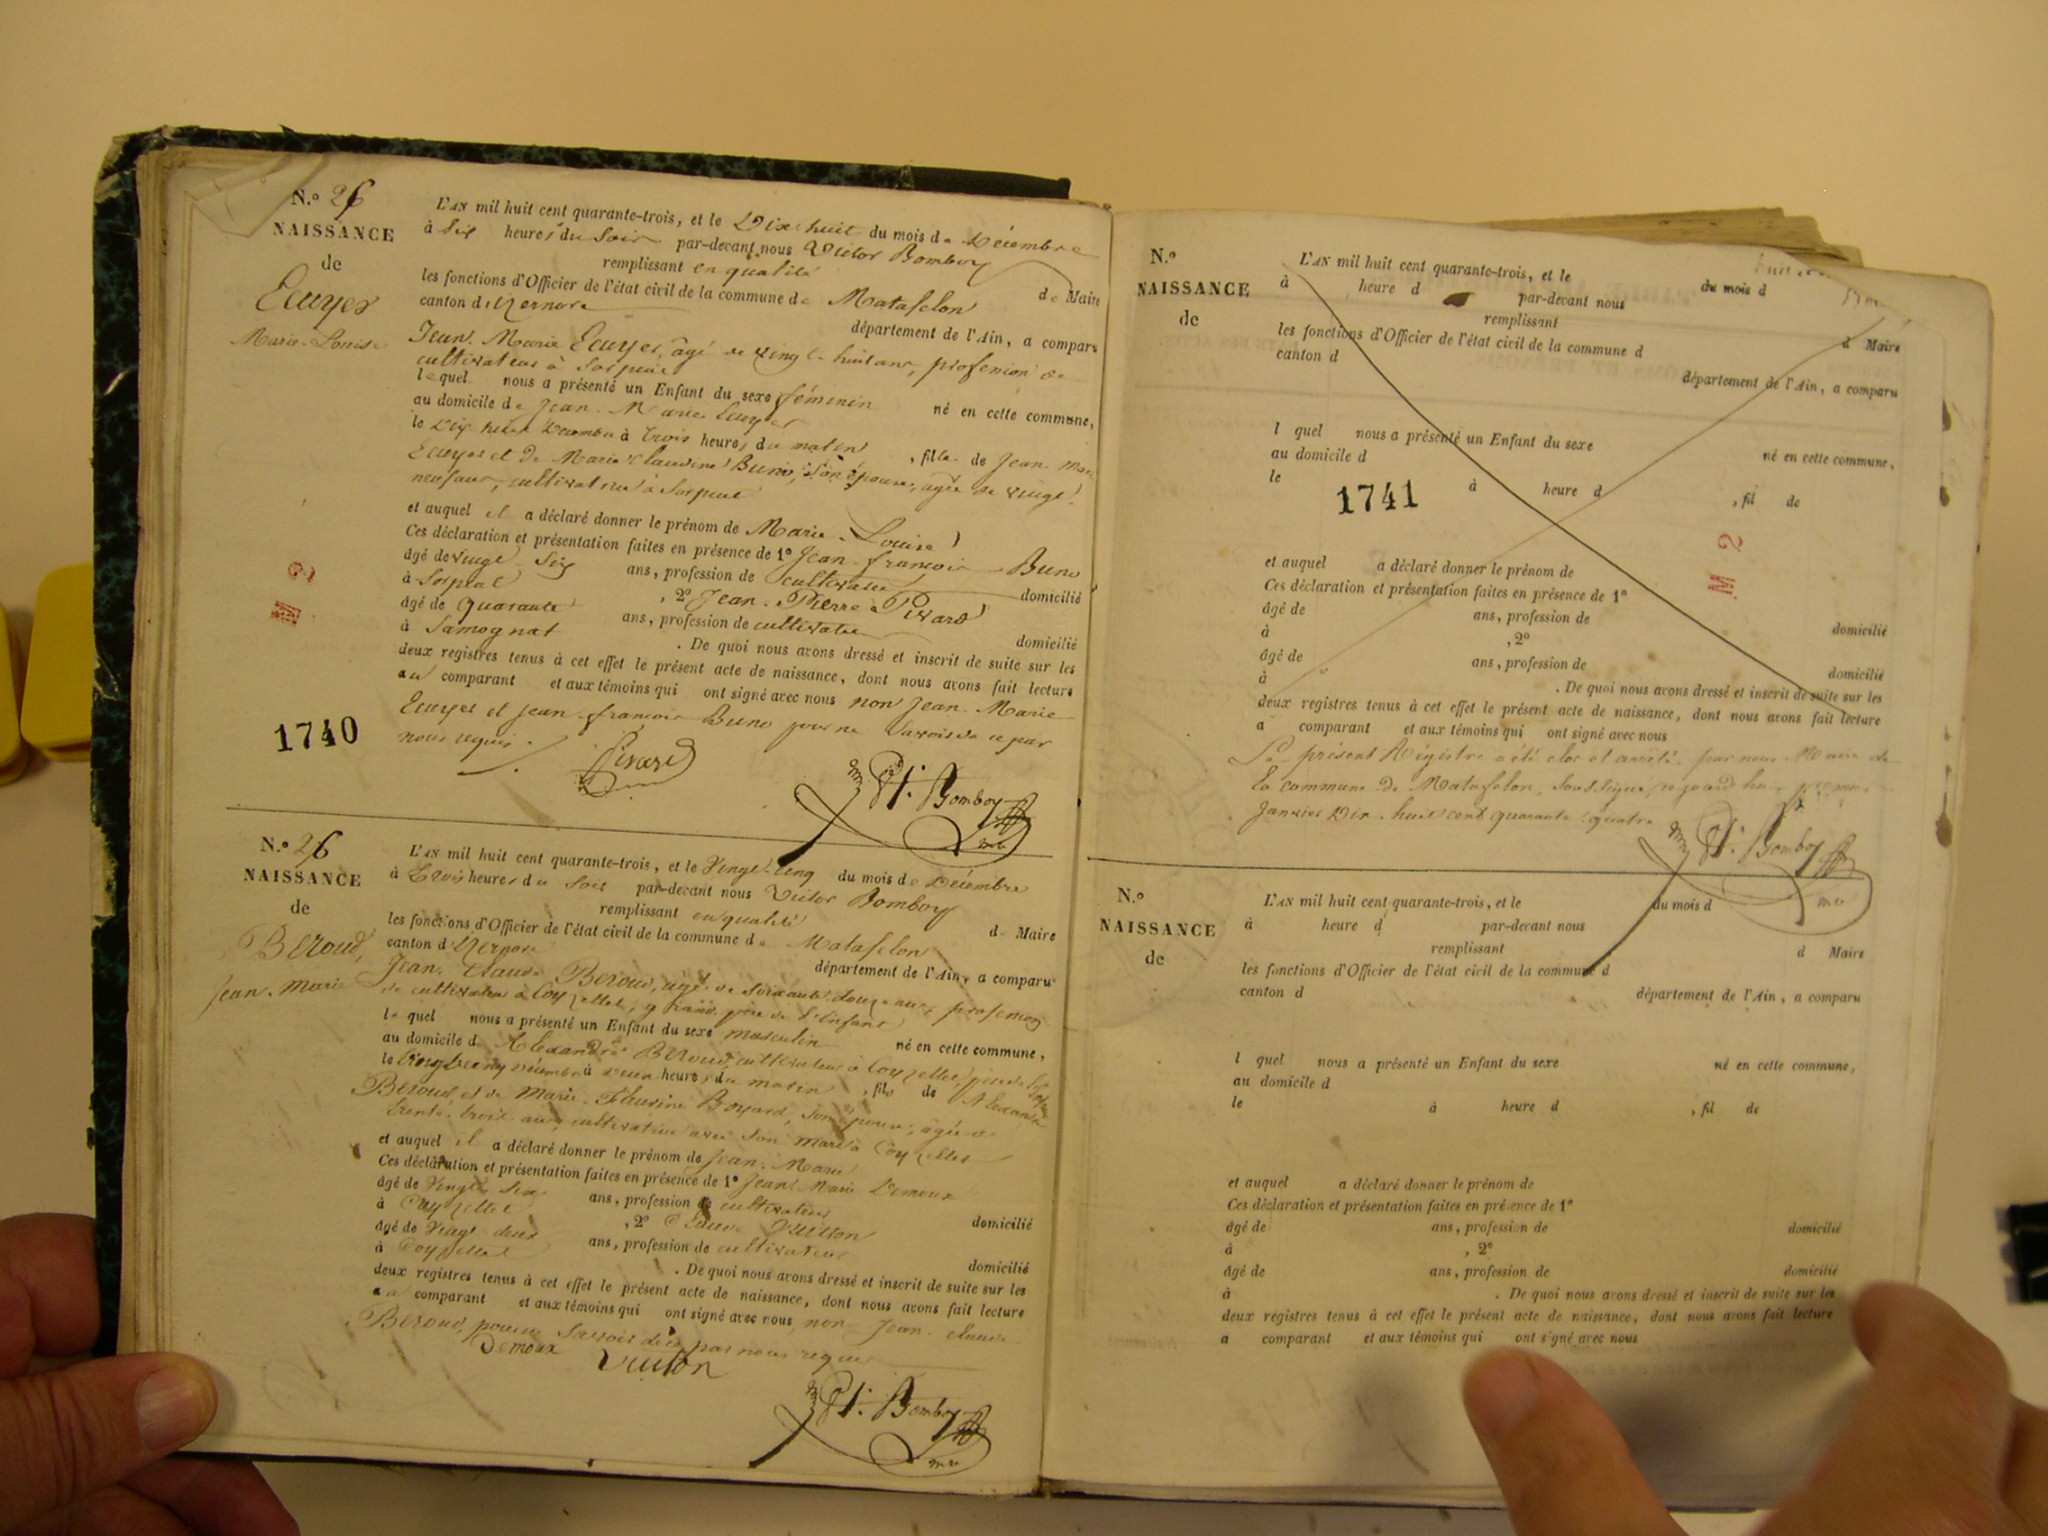 N.o 26
NAISSANCE
de
Ecuyer
Marie-Louise
L'AN mil huit cent quarante-trois, et le Dix huit du mois de Décembre
à Six heures du Soir par-devant nous Victor Bomboy
remplissant en qualité de Maire
les fonctions d'Officier de l'état civil de la commune de Matafelon
canton d'Izernore département de l'Ain, a comparu
Jean Marie Ecuyer, âgé de vingt-huit ans, profession de
cultivateur à Sorpiat
lequel nous a présenté un Enfant du sexe féminin né en cette commune,
au domicile de Jean-Marie Ecuyer
le Dix huit Décembre à trois heures du matin, fille de Jean-Marie
Ecuyer et de Marie Claudine Buno, son épouse, âgée de vingt
neuf ans, cultivatrice à Sorpiat
et auquel il a déclaré donner le prénom de Marie-Louise
Ces déclaration et présentation faites en présence de 1o Jean-françois Buno
âgé de vingt-Six ans, profession de cultivateur domicilié
à Sorpiat, 2o Jean-Pierre Pivard
âgé de quarante ans, profession de cultivateur domicilié
à Samognat. De quoi nous avons dressé et inscrit de suite sur les
deux registres tenus à cet effet le présent acte de naissance, dont nous avons fait lecture
au comparant et aux témoins qui ont signé avec nous non Jean-Marie
Ecuyer et jean-françois Buno pour ne savoir de ce par
nous requis.
1740
Pivard
Vt. Bomboy
M 2
N.o 26
NAISSANCE
de
Beroud,
Jean-Marie
L'AN mil huit cent quarante-trois, et le Vingt-cinq du mois de Décembre
à Trois heures du Soir par-devant nous Victor Bomboy
remplissant en qualité de Maire
les fonctions d'Officier de l'état civil de la commune de Matafelon
canton d'Izernore département de l'Ain, a comparu
Jean-Claude Beroud, âgé de soixante-douze ans, profession
de cultivateur à Coyzellet, grand père de l'Enfant
lequel nous a présenté un Enfant du sexe masculin né en cette commune,
au domicile d'Alexandre Beroud, cultivateur à Coyzellet, père de l'Enfant
le Vingt cinq décembre à heures du matin, fils de Alexandre
Beroud, et de Marie-Fleurine Boyard, son épouse, âgée de
trente-trois ans, cultivatrice avec son mari à Coyzellet
et auquel il a déclaré donner le prénom de Jean-Marie
Ces déclaration et présentation faites en présence de 1o Jean-Marie Demoux
âgé de Vingt Six ans, profession de cultivateur domicilié
à Coyzellet, 2o Claude Vuitton
âgé de Vingt-deux ans, profession de cultivateur domicilié
à Coyzellet. De quoi nous avons dressé et inscrit de suite sur les
deux registres tenus à cet effet le présent acte de naissance, dont nous avons fait lecture
au comparant et aux témoins qui ont signé avec nous, non Jean-Claude
Beroud, pour ne savoir de ce par nous requis
Demoux Vuitton
Vt. Bomboy
N.o
NAISSANCE
de
L'AN mil huit cent quarante-trois, et le du mois d
à heure d par-devant nous
remplissant d Maire
les fonctions d'Officier de l'état civil de la commune d
canton d département de l'Ain, a comparu
l quel nous a présenté un Enfant du sexe né en cette commune,
au domicile d
le à heure d , fil de
1741
M 2
et auquel a déclaré donner le prénom de
Ces déclaration et présentation faites en présence de 1o
âgé de ans, profession de domicilié
à , 2o
âgé de ans, profession de domicilié
à . De quoi nous avons dressé et inscrit de suite sur les
deux registres tenus à cet effet le présent acte de naissance, dont nous avons fait lecture
a comparant et aux témoins qui ont signé avec nous
Le présent Régistre a été clos et arrêté par nous Maire de
la commune de Matafelon, soussigné, ce jourd'hui premier
Janvier Dix-huit cent quarante-quatre
Vt. Bomboy
N.o
NAISSANCE
de
L'AN mil huit cent quarante-trois, et le du mois d
à heure d par-devant nous
remplissant d Maire
les fonctions d'Officier de l'état civil de la commune d
canton d département de l'Ain, a comparu
l quel nous a présenté un Enfant du sexe né en cette commune,
au domicile d
le à heure d , fil de
et auquel a déclaré donner le prénom de
Ces déclaration et présentation faites en présence de 1o
âgé de ans, profession de domicilié
à , 2o
âgé de ans, profession de domicilié
à . De quoi nous avons dressé et inscrit de suite sur les
deux registres tenus à cet effet le présent acte de naissance, dont nous avons fait lecture
a comparant et aux témoins qui ont signé avec nous